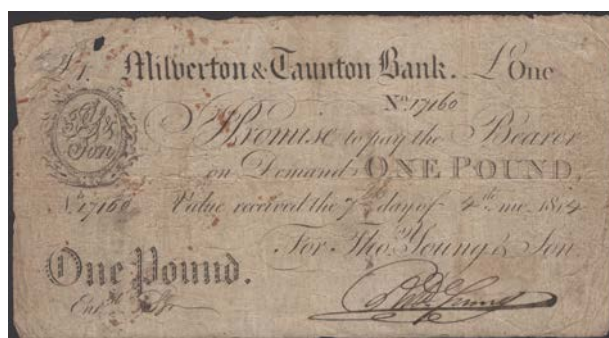 £1. Milverton & Taunton Bank. £One
No. 17160
TY & Son
I Promise to pay the Bearer
on Demand ONE POUND,
No. 17160 Value received the 7th day of 4th mo. 1814
For Thos. Young & Son
One Pound.
Entd.